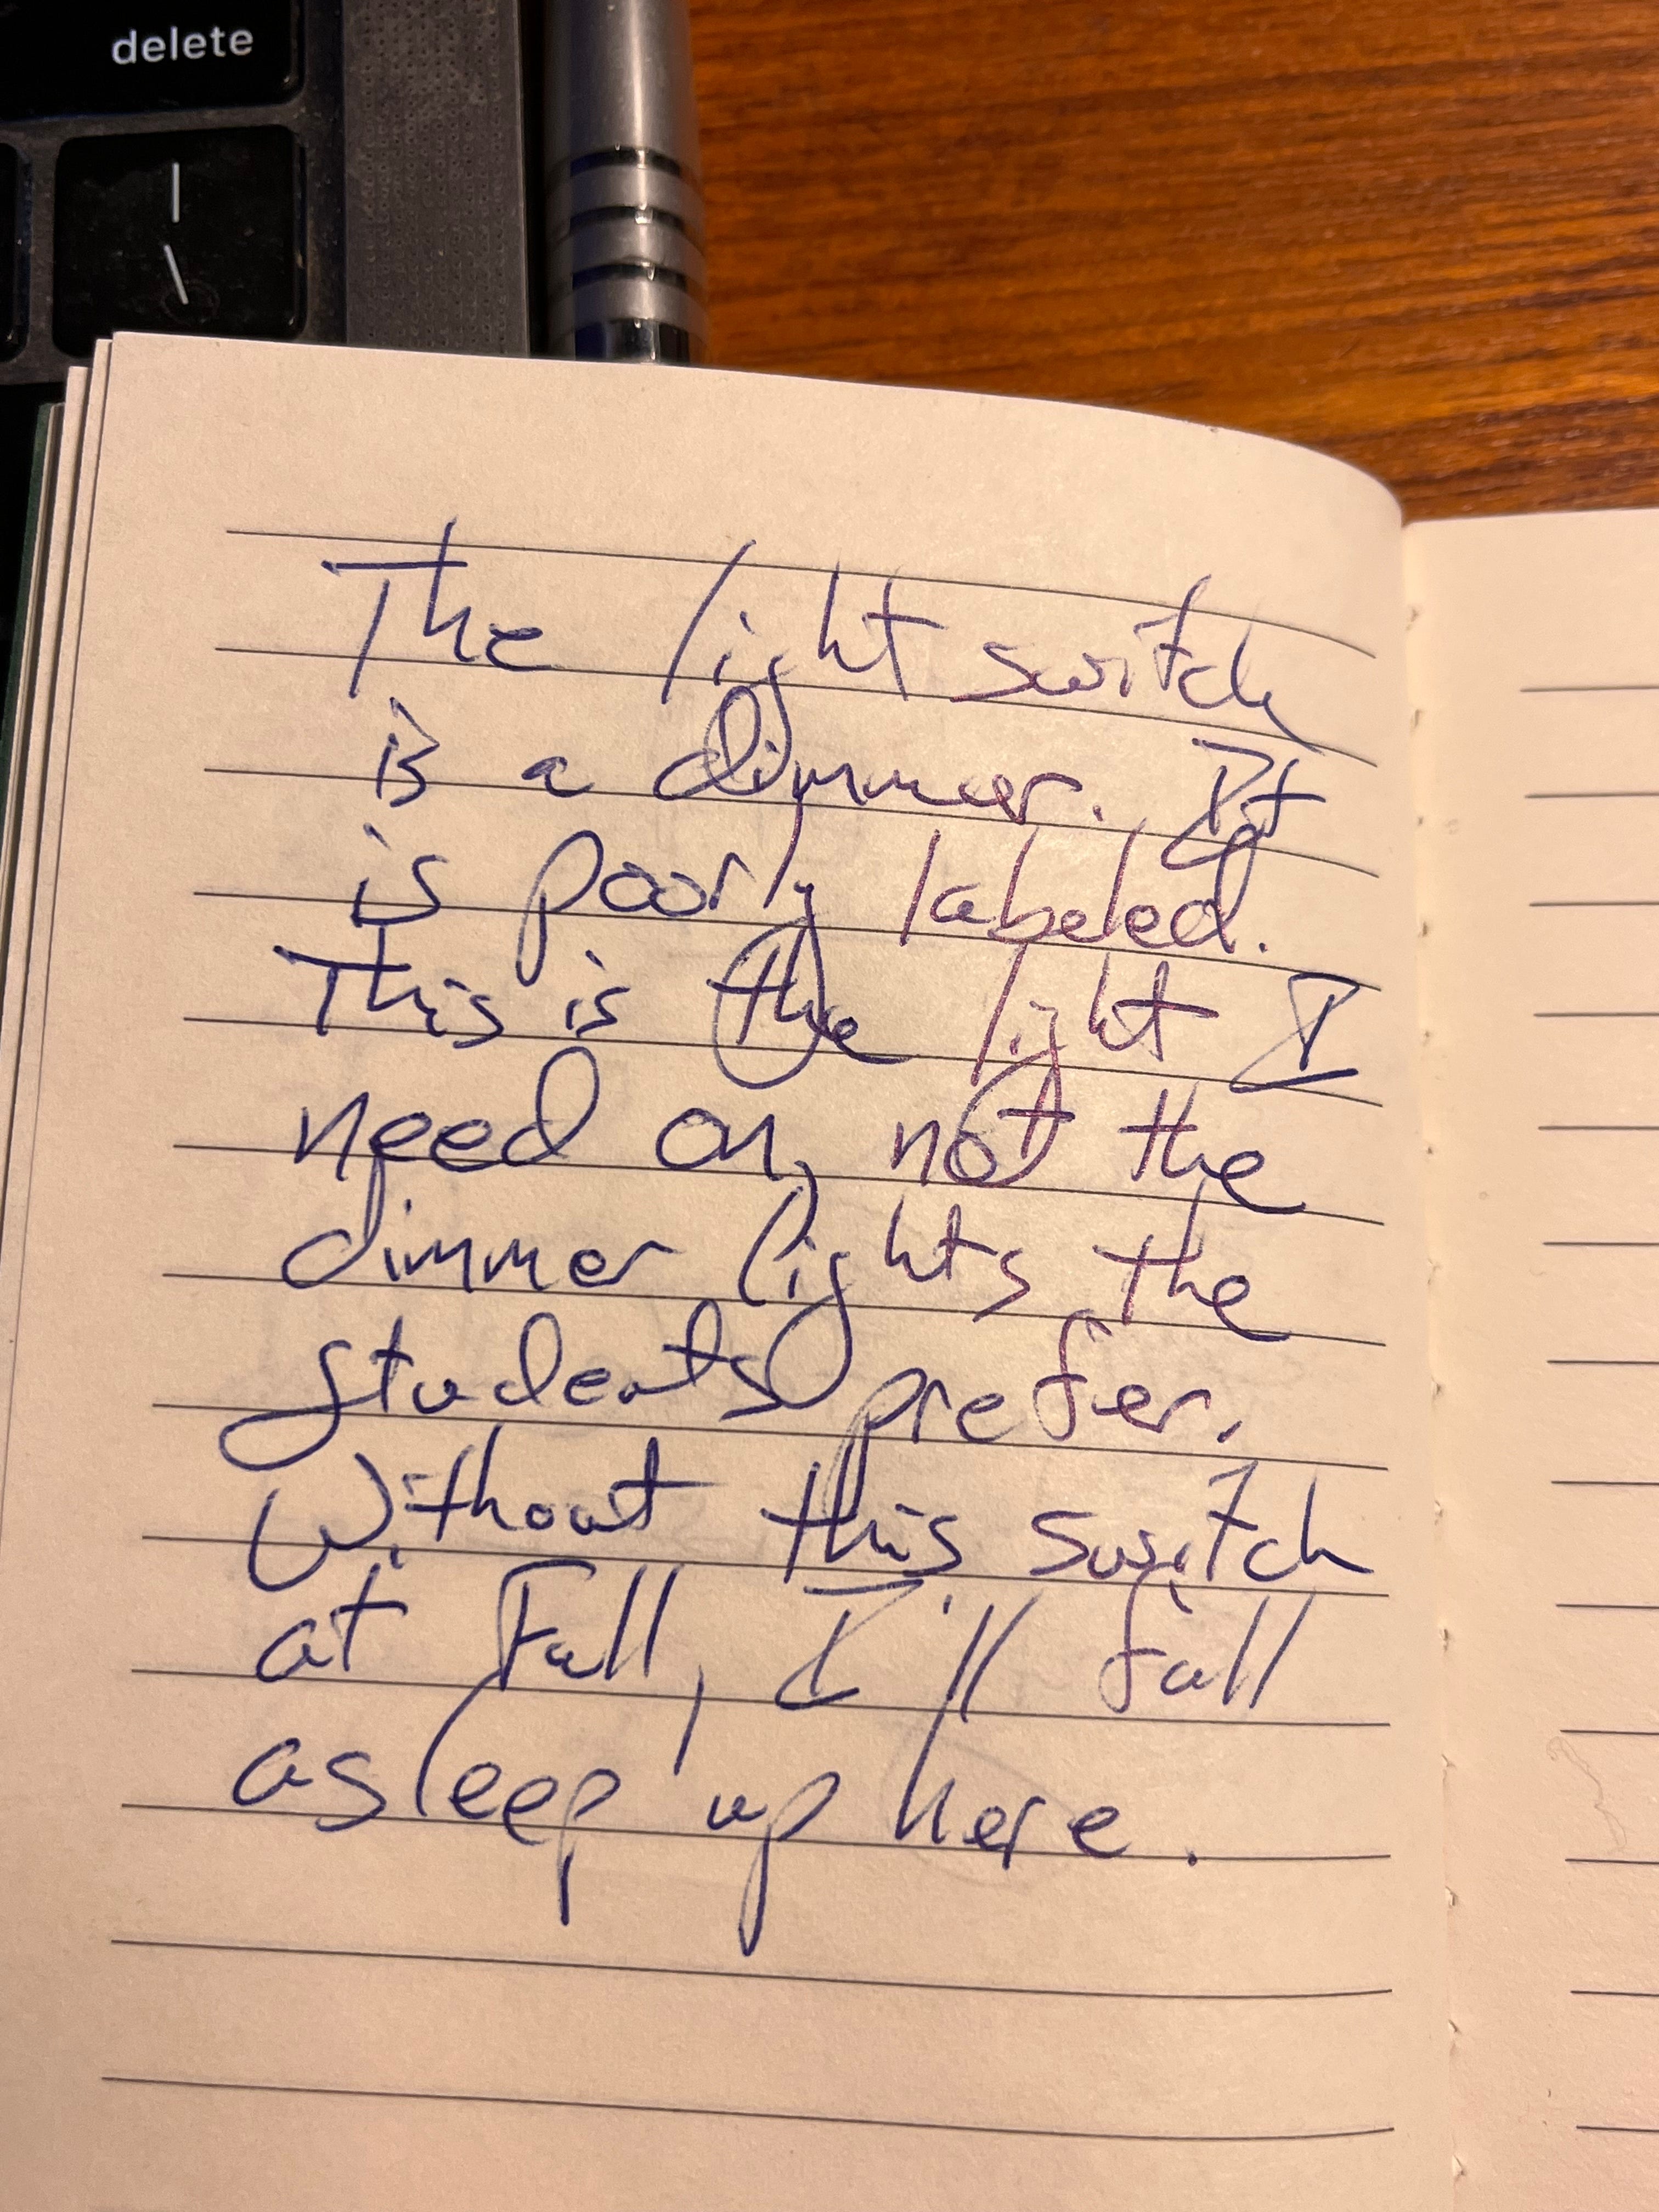 delete
|
\
The light switch
is a dimmer. It
is poorly labeled.
This is the light I
need on, not the
dimmer lights the
students prefer.
Without this switch
at Full, I'll fall
asleep up here.